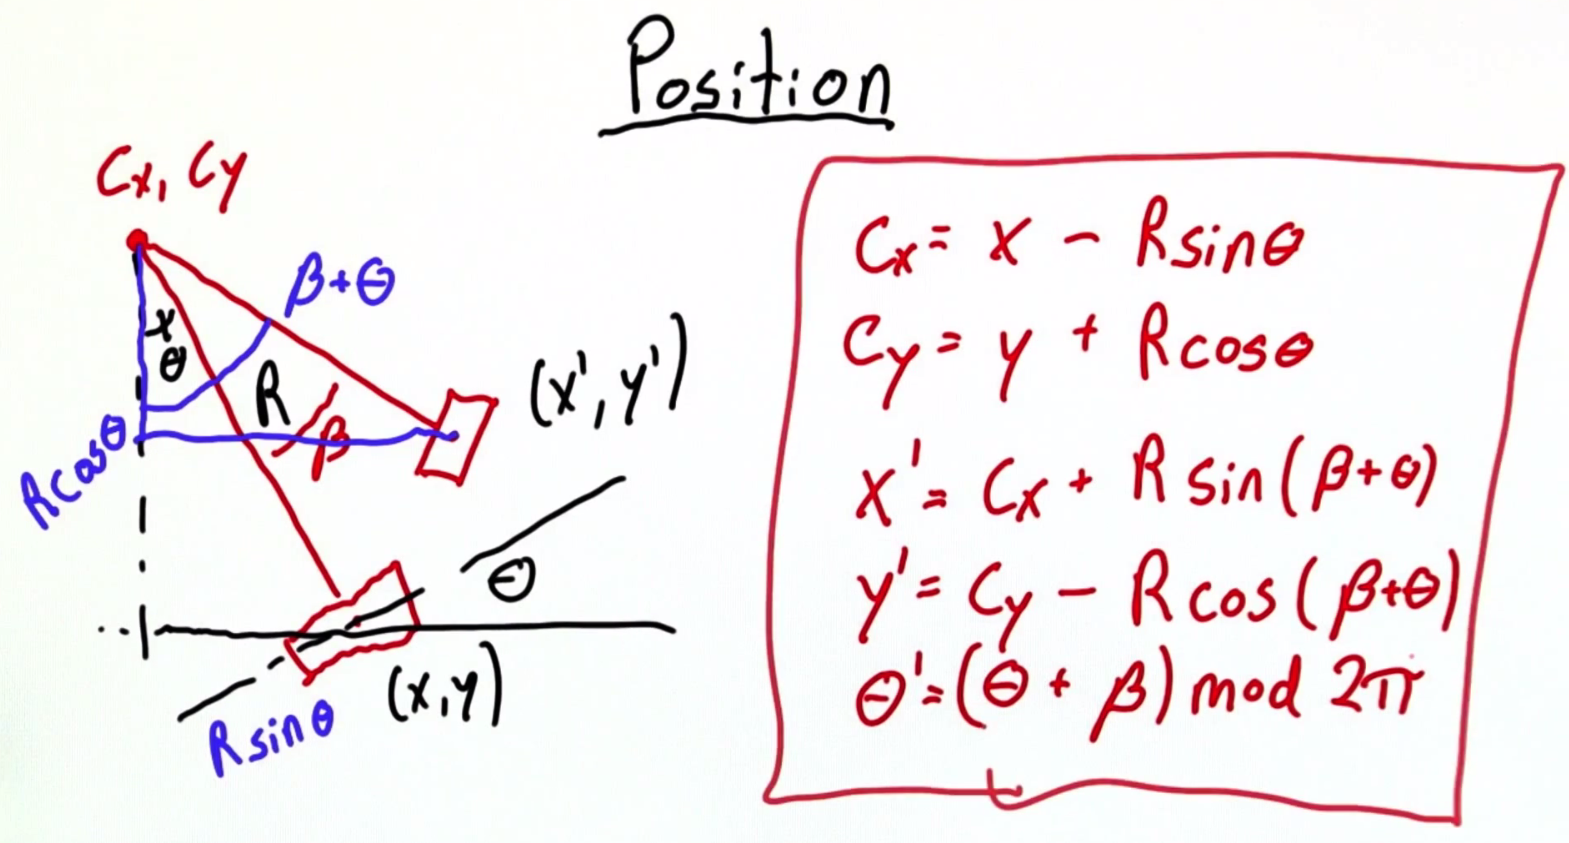 Position
Cx, Cy
β+θ
θ
R
β
(x', y')
Rcosθ
θ
(x,y)
Rsinθ
Cx = x - Rsinθ
Cy = y + Rcosθ
x' = Cx + R sin(β+θ)
y' = Cy - R cos(β+θ)
θ' = (θ + β) mod 2π